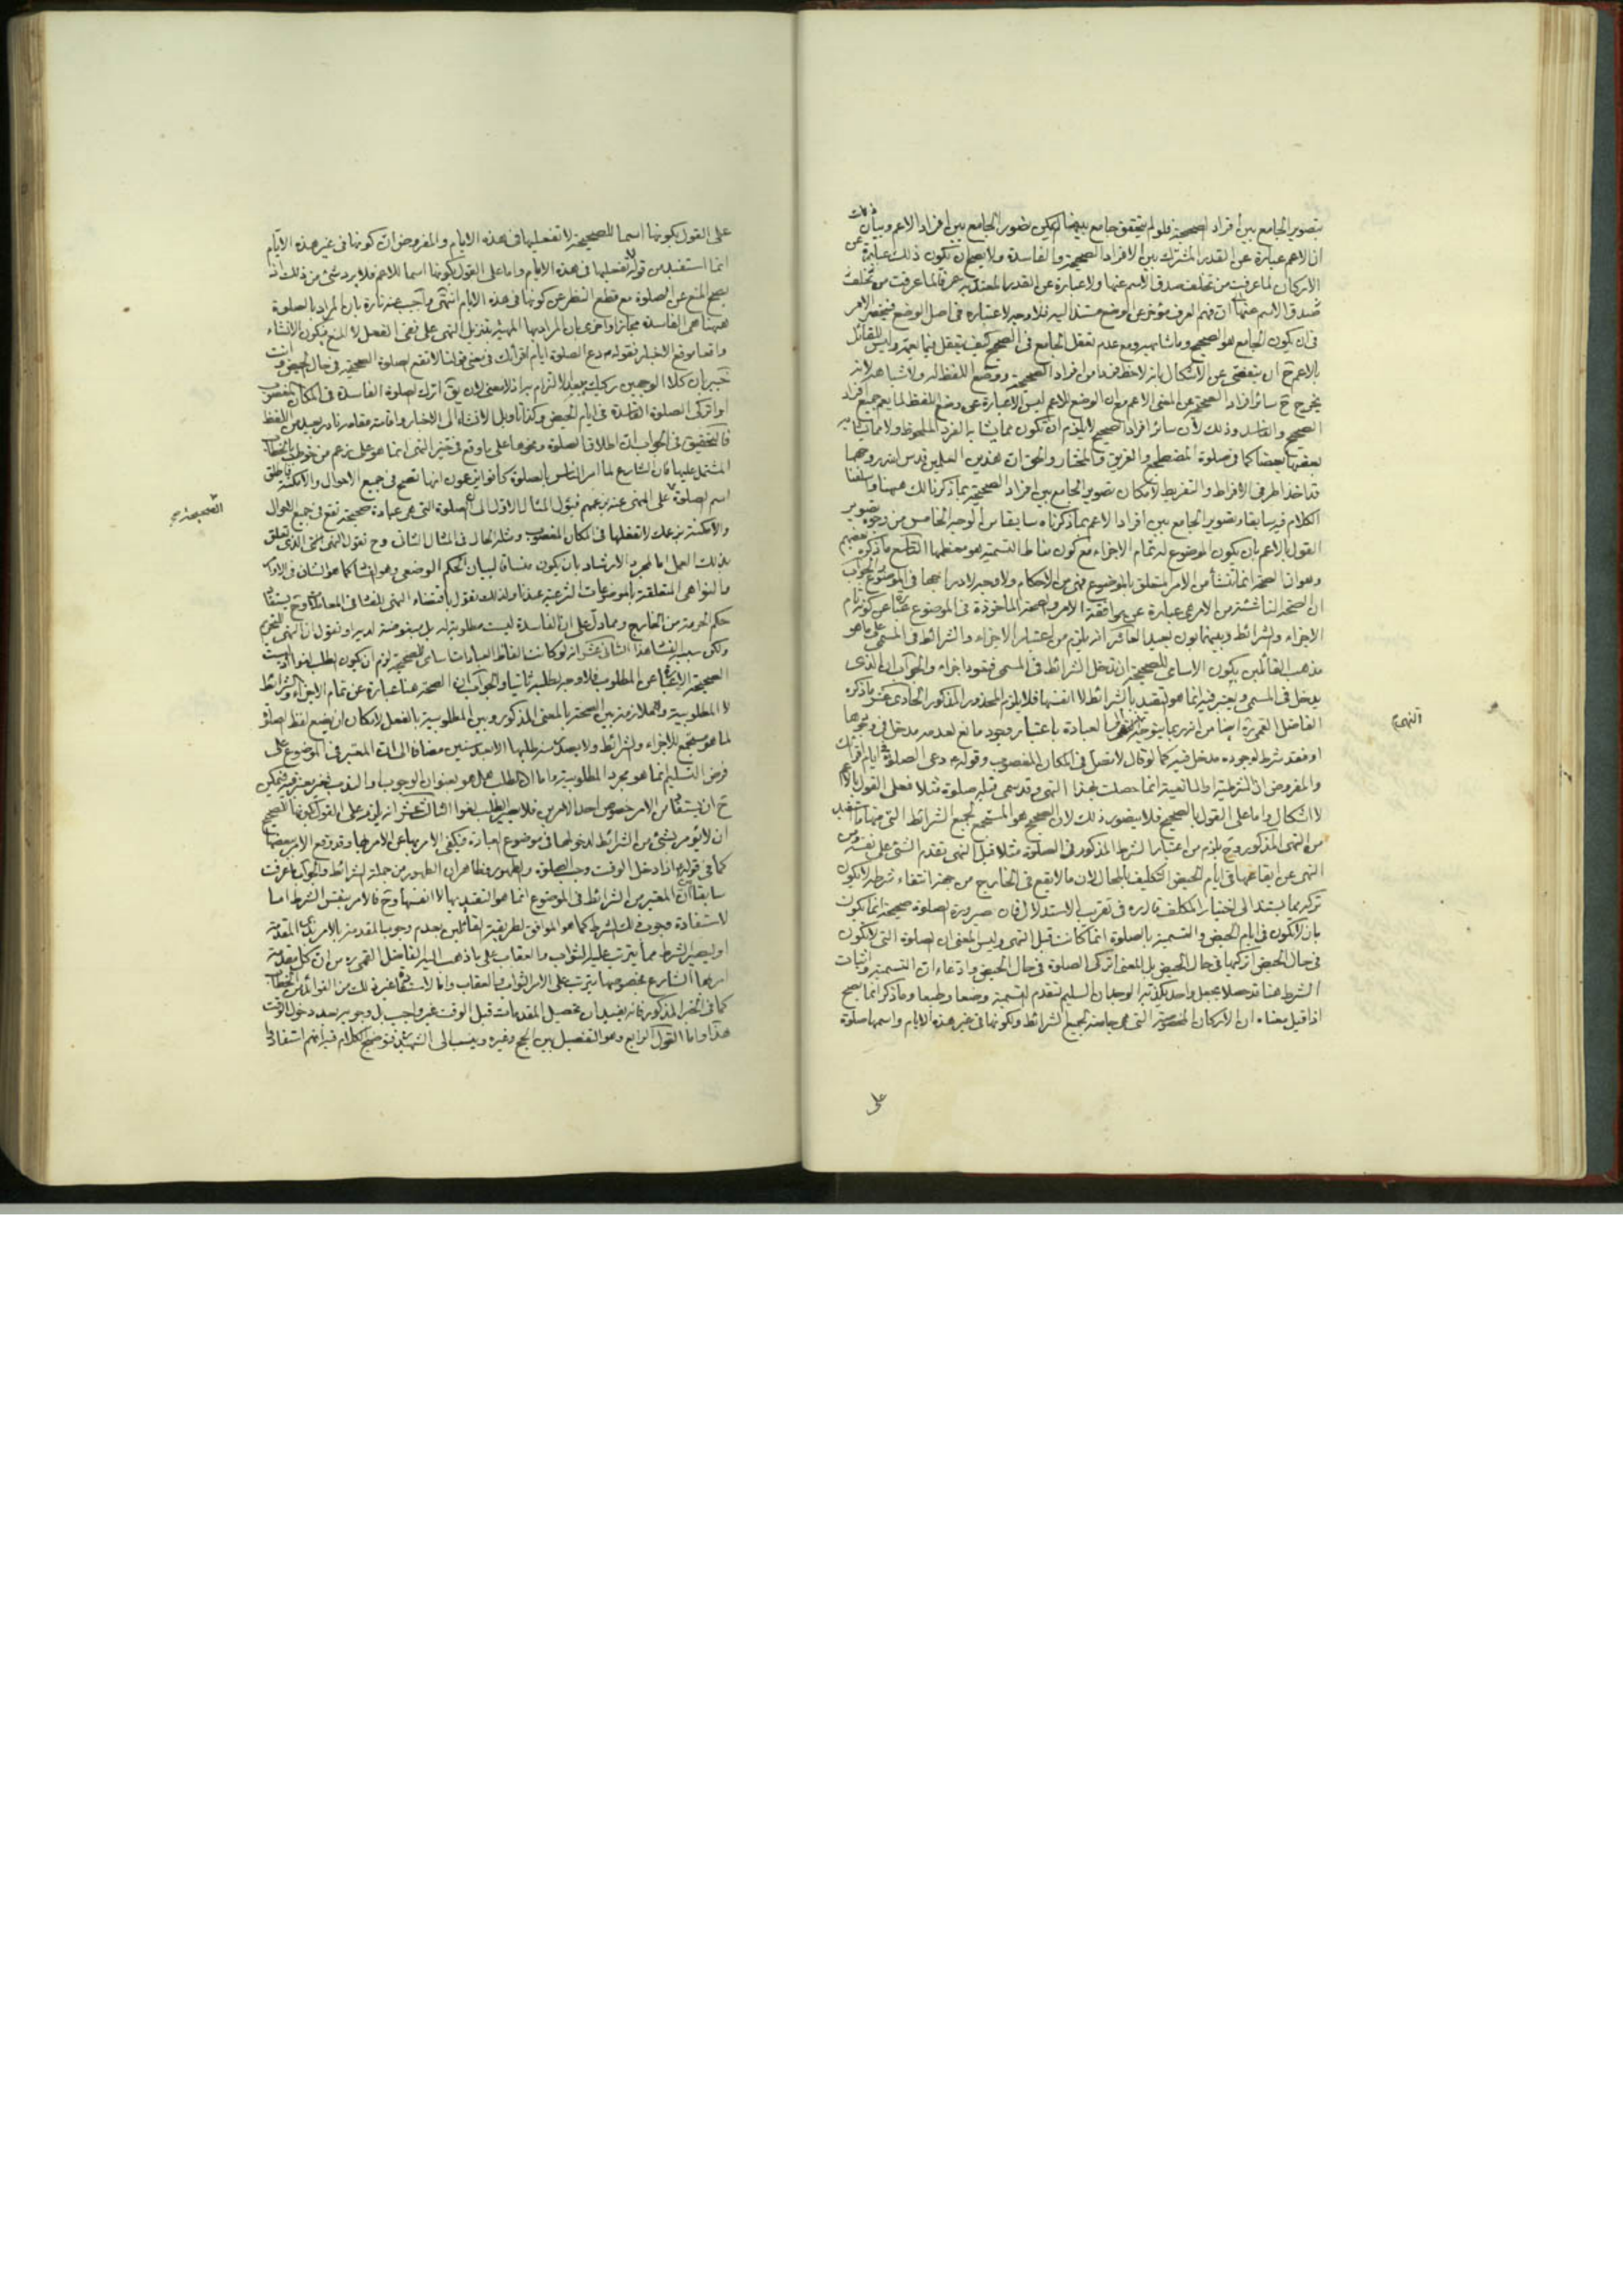 بتصوير الجامع بين أفراد الصحيحة فلو لم يتحقق جامع بينها لم يمكن تصوير الجامع بين افراد الاعم وبيان
ان الاعم عبارة عن القدر المشترك بين الافراد الصحيحة والفاسدة ولا يصح ان يكون ذلك عبارة عن
الاركان لما عرفت من تخلف صدق الاسم عنها ولا عبارة عن القدر المعتد به عرفا لما عرفت من تخلف
صدق الاسم عنها ان فهم العرف مؤخر عن الوضع مستند اليه فلا وجه لاعتباره في اصل الوضع فينحصر الامر
في ان يكون الجامع هو الصحيح وما شابهه ومع عدم تعقل الجامع في الصحيح كيف يتعقل فيما يعمه وليس للقائل
بالاعم ح ان يتفصى عن الاشكال بانه لاحظ فردا من افراد الصحيحة ووضع اللفظ له ولاشباهه لانه
يخرج ح سائر افراد الصحيحة عن المعنى الاعم مع ان الوضع للاعم ليس الا عبارة عن وضع اللفظ لما يعم جميع افراد
الصحيح والفاسد وذلك لان سائر افراد الصحيح لا يلزم ان يكون مما يشابه الفرد الملحوظ ولا مما يشابه
بعضها بعضا كما في صلوة المضطجع والغريق والمختار والحق ان هذين العلمين قدس الله روحهما
قد اخذا طرفي الافراط والتفريط لامكان تصوير الجامع بين افراد الصحيحة بما ذكرنا لك هيهنا واسلفنا
الكلام فيه سابقا وتصوير الجامع بين افراد الاعم بما ذكرناه سابقا من الوجه الخامس من وجوه تصوير
القول بالاعم بان يكون الموضوع له تمام الاجزاء مع كون مناط التسمية هو معظمها التاسع ما ذكره بعضهم
وهو ان الصحة انما تنشأ من الامر المتعلق بالموضوع فهي من الاحكام ولا وجه لادراجها في الموضوع والجواب
ان الصحة الناشئة من الامر هي عبارة عن موافقة الامر والصحة الماخوذة في الموضوع عبارة عن كونه تام
الاجزاء والشرائط وبينهما بون بعيد العاشر انه يلزم من اعتبار الاجزاء والشرائط في المسمى على ما هو
مذهب القائلين بكون الاسامي للصحيحة ان تدخل الشرائط في المسمى فيعود اجزاء والجواب ان الذي
يدخل في المسمى ويعتبر فيه انما هو التقيد بالشرائط لا انفسها فلا يلزم المحذور المذكور الحادي عشر ما ذكره
الفاضل القمي ره ايضا من انه ربما يتوجه النهي الى العبادة باعتبار وجود مانع لعدمه مدخل في وجودها
او فقد شرط لوجوده مدخل فيه كما لو قال لا تصل في المكان المغصوب وقوله دعي الصلوة ايام اقرائك
والمفروض ان الشرطية او المانعية انما حصلت بهذا النهي وقد سمي قبله صلوة مثلا فعلى القول بالاعم
لا اشكال واما على القول بالصحيح فلا يتصور ذلك لان الصحيح هو المستجمع لجميع الشرائط التي منها ما استفيد
من النهي المذكور وح يلزم من اعتبار الشرط المذكور في الصلوة مثلا قبل النهي تقدم الشيء على نفسه ومن
النهي عن ايقاعها في ايام الحيض التكليف بالمحال لان ما لا يقع في الخارج من جهة انتفاء شرطه لا يكون
تركه مما يستند الى اختيار المكلف قال ره في تقريب الاستدلال فان صيرورة الصلوة صحيحة انما يكون
بان لا تكون في ايام الحيض والتسمية بالصلوة انما كانت قبل النهي وليس المعنى ان الصلوة التي لا تكون
في حال الحيض اتركها في حال الحيض بل المعنى اتركي الصلوة في حال الحيض وادعاء ان التسمية واثبات
الشرط هنا قد حصلا بجعل واحد يكذبه الوجدان السليم لتقدم التسمية وضعا وطبعا وما ذكر انما يصح
اذا قيل معناه ان الاركان المخصوصة التي هي جامعة لجميع الشرائط ولكونها في غير هذه الايام واسمها صلوة
على
النهي
على القول بكونها اسما للصحيحة لا تفعليها في هذه الايام والمفروض ان كونها في غير هذه الايام
انما استفيد من قوله لا تفعليها في هذه الايام واما على القول بكونها اسما للاعم فلا يرد شيء من ذلك اذ
يصح المنع عن الصلوة مع قطع النظر عن كونها في هذه الايام انتهى واجيب عنه تارة بان المراد بالصلوة
هيهنا هي الفاسدة مجازا واخرى بان المراد بها المهيئة بتنزيل النهي على نفي الفعل لا المنع فيكون الانشاء
واقعا موقع الاخبار فقوله دع الصلوة ايام اقرائك في معنى قولنا لا تقع الصلوة الصحيحة في حال الحيض وانت
خبير بان كلا الوجهين ركيك بعيد الالتزام به اذ لا معنى لان يق اترك الصلوة الفاسدة في المكان المغصوب
او اتركي الصلوة الفاسدة في ايام الحيض وكذا تاويل الانشاء الى الاخبار واقامته مقامه نادر بعيد من اللفظ
فالتحقيق في الجواب ان اطلاق الصلوة ونحوها على ما وقع في حيز النهي انما هو على زعم من خوطب بالخطاب
المشتمل عليها فان الشارع لما امر الناس بالصلوة كانوا يزعمون انها تصح في جميع الاحوال والامكنة فاطلق
اسم الصلوة على المنهي عنه بزعمهم فيؤل المثال الاول الى ان الصلوة التي هي عبادة صحيحة تقع في جميع الاحوال
والامكنة بزعمك لا تفعلها في المكان المغصوب ومثله الحال في المثال الثاني وح نقول النهي الذي تعلق
بذلك العمل اما لمجرد الارشاد بان يكون مساقا لبيان الحكم الوضعي وهو الفساد كما هو الشان في الاوامر
والنواهي المتعلقة بالموضوعات الشرعية عندنا ولذلك نقول باقتضاء النهي للفساد في المعاملات وح يستفاد
حكم الحرمة من الخارج ومما دل على ان الفاسدة ليست مطلوبة له بل مبغوضة لديه او نقول ان النهي للتحريم
ولكن سببه الفساد هذا الثاني عشر انه لو كانت الفاظ العبادات اسامي للصحيحة لزم ان يكون الطلب لغوا اذ ليست
الصحيحة الا عبارة عن المطلوب فلا وجه لطلبه ثانيا والجواب ان الصحة هنا عبارة عن تمام الاجزاء والشرائط
لا المطلوبية ولا ملازمة بين الصحة بالمعنى المذكور وبين المطلوبية بالفعل لامكان ان يضع لفظ الصلوة
لما هو مستجمع للاجزاء والشرائط ولا يصدر منه طلبها الا بعد سنين مضافا الى ان المعتبر في الموضوع على
فرض التسليم انما هو مجرد المطلوبية واما ان الطلب هل هو بعنوان الوجوب او الندب فغير معتبر فيه فيمكن
ح ان يستفاد من الامر خصوص احد الامرين فلا يصير الطلب لغوا الثالث عشر انه يلزم على القول بكونها للصحيح
ان لا يؤمر بشيء من الشرائط لدخولها في موضوع العبادة فيكفي الامر بها عن الامر بها وقد وقع الامر ببعضها
كما في قوله اذا دخل الوقت وجب الصلوة والطهور فظاهر ان الطهور من جملة الشرائط والجواب ما عرفت
سابقا ان المعتبر من الشرائط في الموضوع انما هو التقييد بها لا انفسها وح فالامر بنفس الشرط اما
لاستفادة وجوب ذلك الشرط كما هو الموافق لطريقة القائلين بعدم وجوب المقدمة بالامر بذي المقدمة
او ليصير الشرط مما يترتب عليه الثواب والعقاب على ما ذهب اليه الفاضل القمي ره من ان كل مقدمة
امر بها الشارع بخصوصها يترتب على الامر الثواب والعقاب واما لاستفادة غير ذلك من الفوائد من الخطاب
كما في الخبر المذكور فانه يفيد ان تحصيل المقدمات قبل الوقت غير واجب بل وجوبه بعد دخول الوقت
هذا واما القول الرابع وهو التفصيل بين الحج وغيره وينسب الى الشهيد فتوضيح الكلام فيه انهم استفادوا
الصحيحة